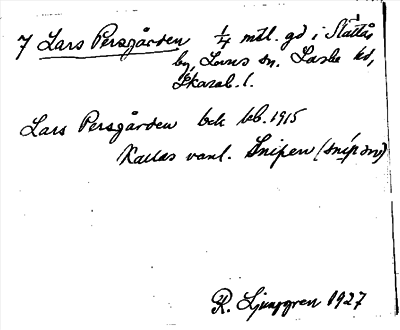 7 Lars Persgården 1/4 mtl. gd i Slättås
by, Lovis sn. Laske hd,
Skarab. l.
Lars Persgården bek kb. 1915
Kallas vanl. Snipen (snípən)
R. Ljunggren 1927